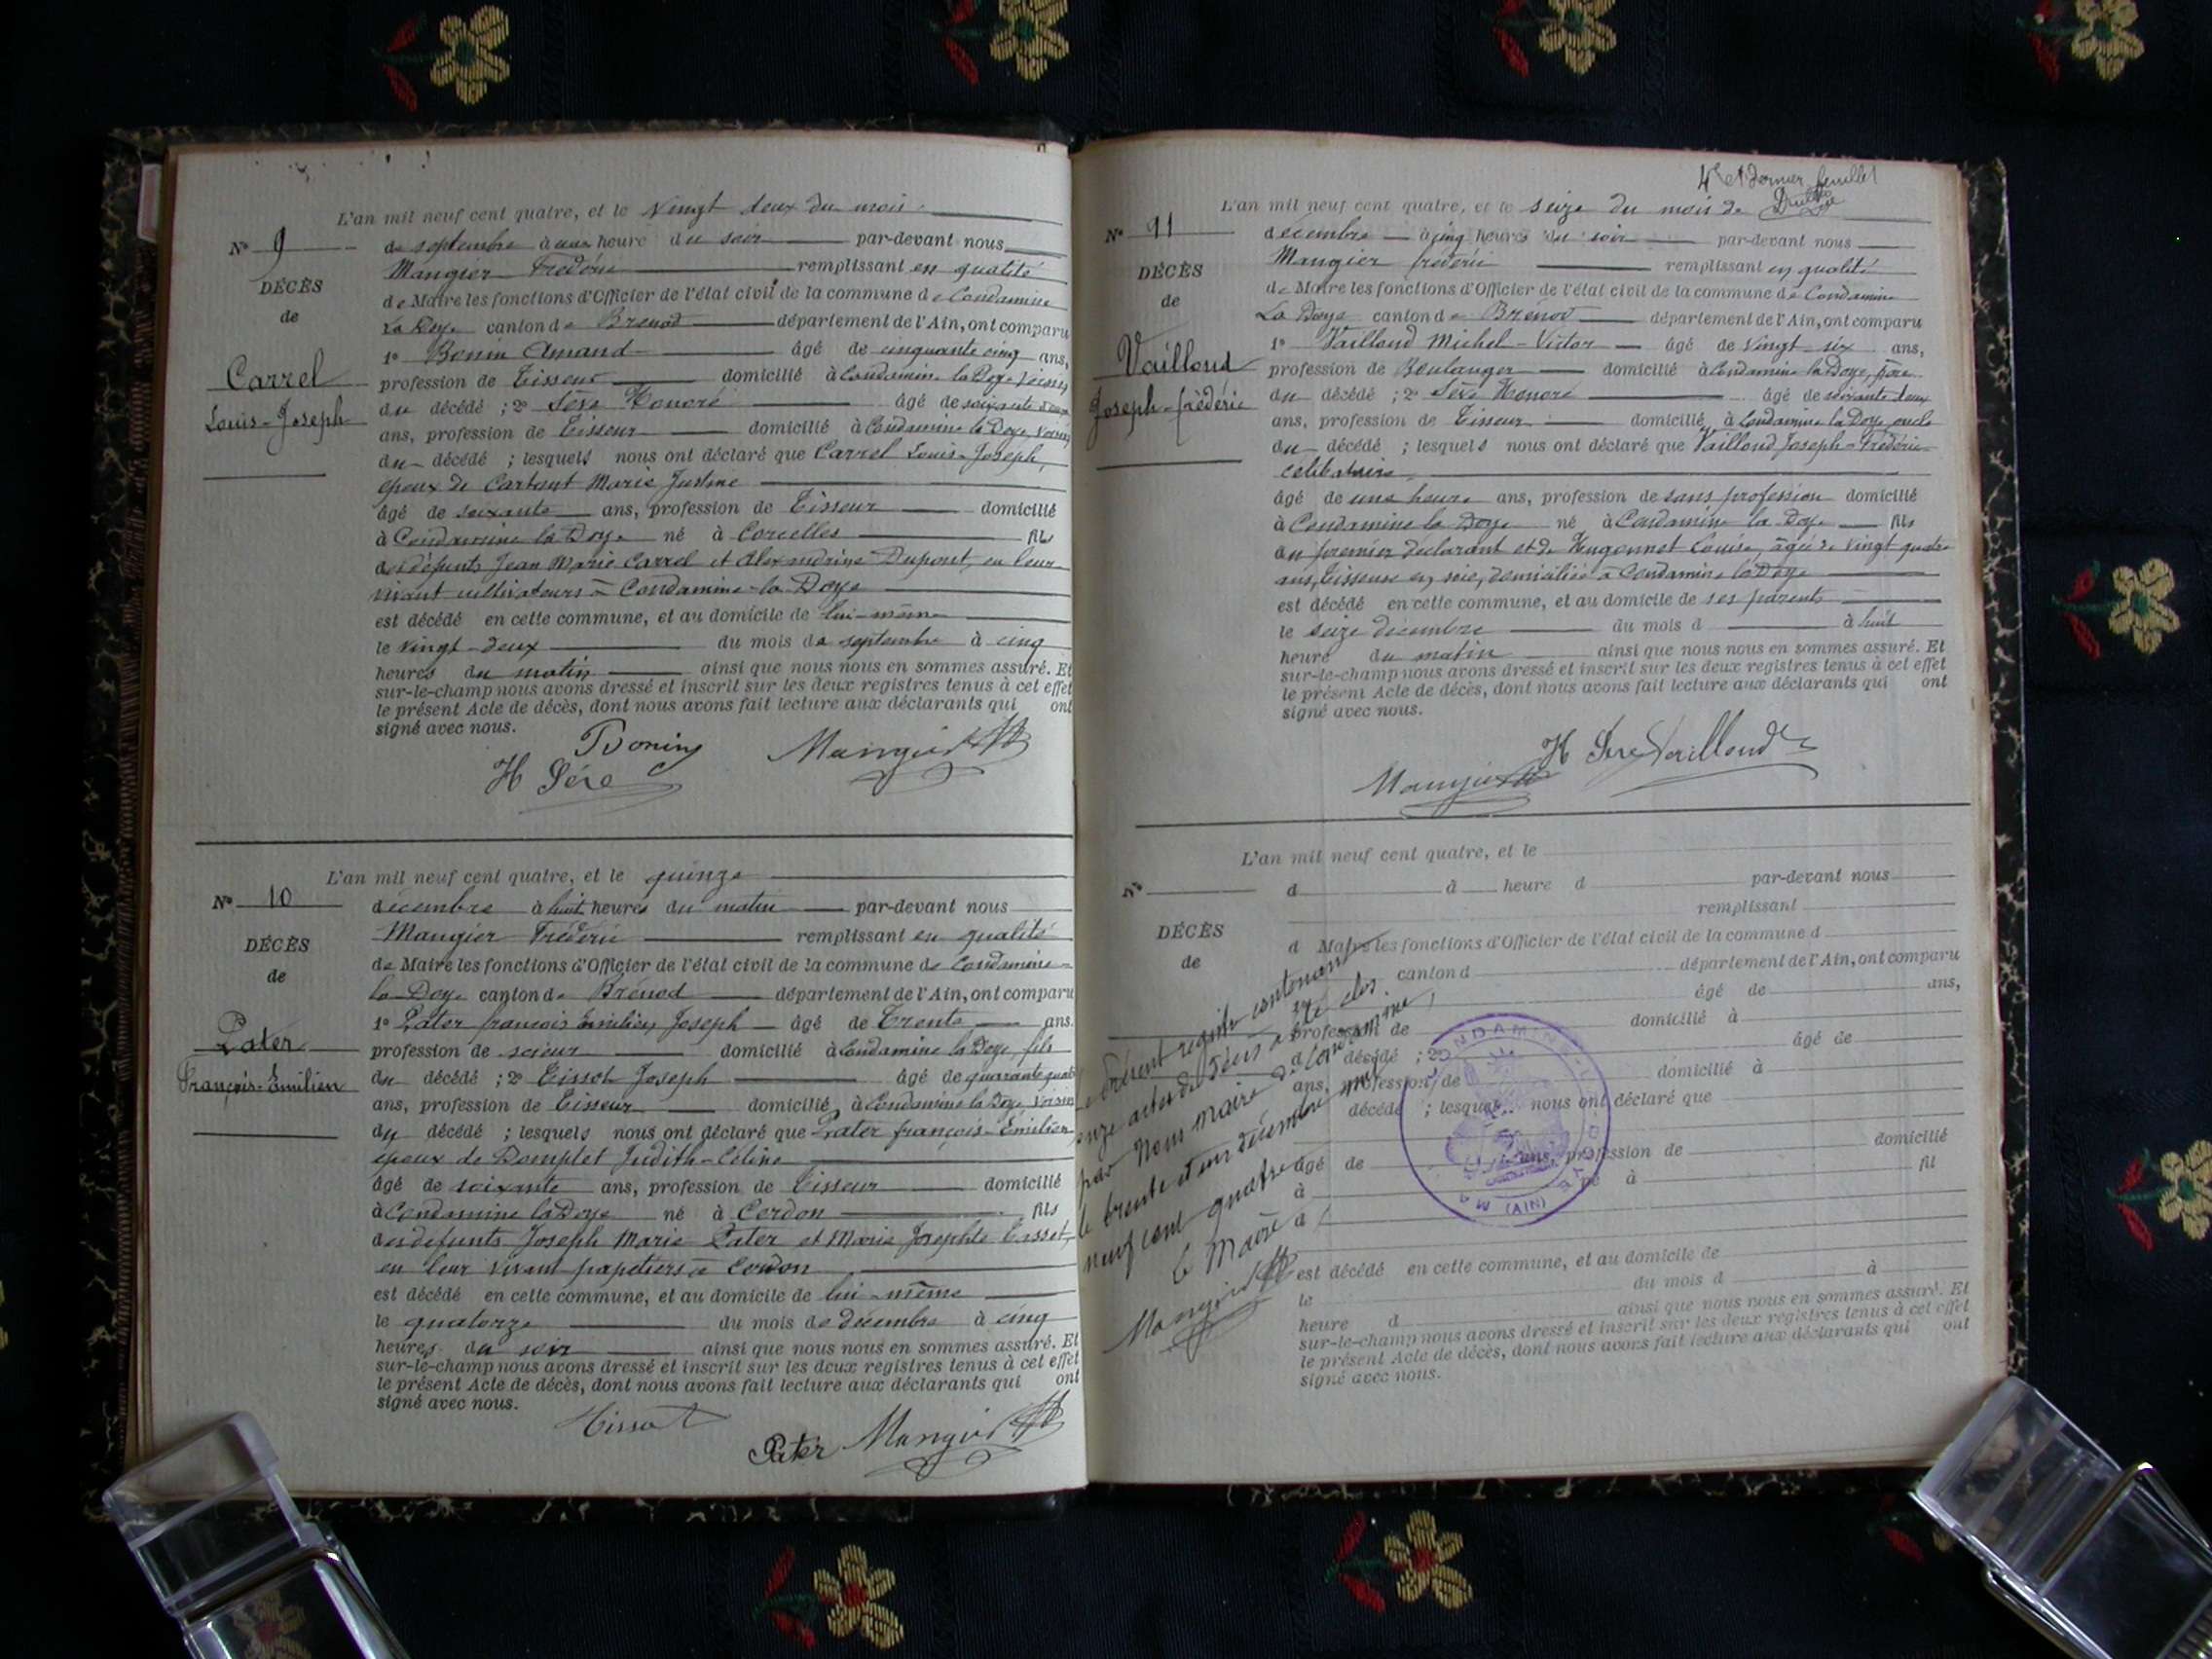 L'an mil neuf cent quatre, et le vingt deux du mois
No 9
de septembre à une heure du soir par-devant nous
Mangier Frédéric remplissant en qualité
DÉCÈS
de Maire les fonctions d'Officier de l'état civil de la commune de Condamine
de
La Doye canton de Brénod département de l'Ain, ont comparu
1º Bonin Amand âgé de cinquante cinq ans,
Carrel
profession de Tisseur domicilié à Condamine la Doye, voisin
du décédé ; 2º Sève Honoré âgé de soixante deux
Louis-Joseph
ans, profession de Tisseur domicilié à Condamine la Doye, voisin
du décédé ; lesquels nous ont déclaré que Carrel Louis-Joseph,
époux de Cartant Marie Justine
âgé de soixante ans, profession de Tisseur domicilié
à Condamine la Doye né à Corcelles fils
des défunts Jean Marie Carrel et Alexandrine Dupont, en leur
vivant cultivateurs à Condamine-la Doye
est décédé en cette commune, et au domicile de lui-même
le vingt-deux du mois de septembre à cinq
heures du matin ainsi que nous nous en sommes assuré. Et
sur-le-champ nous avons dressé et inscrit sur les deux registres tenus à cet effet
le présent Acte de décès, dont nous avons fait lecture aux déclarants qui ont
signé avec nous.
Bonin
Mangier
H Sève
L'an mil neuf cent quatre, et le quinze
No 10
décembre à huit heures du matin par-devant nous
Mangier Frédéric remplissant en qualité
DÉCÈS
de Maire les fonctions d'Officier de l'état civil de la commune de Condamine
de
la Doye canton de Brénod département de l'Ain, ont comparu
1º Pater françois Emilien Joseph âgé de Trente ans.
Pater
profession de scieur domicilié à Condamine la Doye, fils
François-Emilien
du décédé ; 2º Tissot Joseph âgé de quarante quatre
ans, profession de Tisseur domicilié à Condamine la Doye, voisin
du décédé ; lesquels nous ont déclaré que Pater françois-Emilien
époux de Domplet Judith-Céline
âgé de soixante ans, profession de Tisseur domicilié
à Condamine la Doye né à Cerdon fils
des défunts Joseph Marie Pater et Marie Josephte Tissot,
en leur vivant papetiers à Cerdon
est décédé en cette commune, et au domicile de lui-même
le quatorze du mois de décembre à cinq
heures du soir ainsi que nous nous en sommes assuré. Et
sur-le-champ nous avons dressé et inscrit sur les deux registres tenus à cet effet
le présent Acte de décès, dont nous avons fait lecture aux déclarants qui ont
signé avec nous.
Tissot
Pater Mangier
4e et dernier feuillet
L'an mil neuf cent quatre, et le seize du mois de
No 11
décembre à cinq heures du soir par-devant nous
Mangier frédéric remplissant en qualité
DÉCÈS
de Maire les fonctions d'Officier de l'état civil de la commune de Condamine
de
La Doye canton de Brénod département de l'Ain, ont comparu
1º Vailloud Michel-Victor âgé de vingt-six ans,
Vailloud
profession de Boulanger domicilié à Condamine la Doye, père
du décédé ; 2º Sève Honoré âgé de soixante deux
Joseph-frédéric
ans, profession de Tisseur domicilié à Condamine la Doye, oncle
du décédé ; lesquels nous ont déclaré que Vailloud Joseph-Frédéric
célibataire
âgé de une heure ans, profession de sans profession domicilié
à Condamine la Doye né à Condamine la Doye fils
du premier déclarant et de Hugonnet Louise, âgée de vingt quatre
ans, tisseuse en soie, domiciliée à Condamine la Doye
est décédé en cette commune, et au domicile de ses parents
le seize décembre du mois d à huit
heure du matin ainsi que nous nous en sommes assuré. Et
sur-le-champ nous avons dressé et inscrit sur les deux registres tenus à cet effet
le présent Acte de décès, dont nous avons fait lecture aux déclarants qui ont
signé avec nous.
H Sève Vailloud
Mangier
L'an mil neuf cent quatre, et le
No
d à heure d par-devant nous
remplissant
DÉCÈS
d Maire les fonctions d'Officier de l'état civil de la commune d
de
canton d département de l'Ain, ont comparu
âgé de ans,
profession de domicilié à
d décédé ; 2º âgé de
ans, profession de domicilié à
décédé ; lesquels nous ont déclaré que
âgé de ans, profession de domicilié
à né à fil
d
est décédé en cette commune, et au domicile de
le du mois d à
heure d ainsi que nous nous en sommes assuré. Et
sur-le-champ nous avons dressé et inscrit sur les deux registres tenus à cet effet
le présent Acte de décès, dont nous avons fait lecture aux déclarants qui ont
signé avec nous.
Le présent registre contenant
onze actes de décès a été clos
par Nous maire de Condamine,
le trente et un décembre mil
neuf cent quatre
Le Maire
Mangier
CONDAMINE-LA-DOYE
MA (AIN)